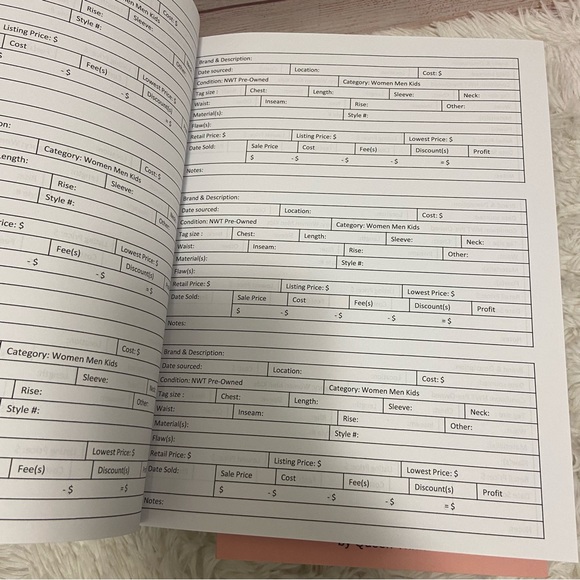 en Men Kids
Rise:
Sleeve:
Style #:
Other:
Listing Price: $
Cost
Fee(s)
Lowest Price: $
- $
- $
Discount(s)
= $
on:
Category: Women Men Kids
Cost: $
ength:
Sleeve:
Rise:
Style #:
rice: $
Fee(s)
Lowest Price: $
Discount(s)
- $
- $
= $
Cost: $
Category: Women Men Kids
Sleeve:
Rise:
Other:
Style #:
Lowest Price: $
Fee(s)
Discount(s)
- $
= $
Brand & Description:
Date sourced: Location: Cost: $
Condition: NWT Pre-Owned Category: Women Men Kids
Tag size : Chest: Length: Sleeve: Neck:
Waist: Inseam: Rise: Other:
Material(s): Style #:
Flaw(s):
Retail Price: $ Listing Price: $ Lowest Price: $
Date Sold: Sale Price Cost Fee(s) Discount(s) Profit
$ - $ - $ - $ = $
Notes:
Brand & Description:
Date sourced: Location: Cost: $
Condition: NWT Pre-Owned Category: Women Men Kids
Tag size : Chest: Length: Sleeve: Neck:
Waist: Inseam: Rise: Other:
Material(s): Style #:
Flaw(s):
Retail Price: $ Listing Price: $ Lowest Price: $
Date Sold: Sale Price Cost Fee(s) Discount(s) Profit
$ - $ - $ - $ = $
Notes:
Brand & Description:
Date sourced: Location: Cost: $
Condition: NWT Pre-Owned Category: Women Men Kids
Tag size : Chest: Length: Sleeve: Neck:
Waist: Inseam: Rise: Other:
Material(s): Style #:
Flaw(s):
Retail Price: $ Listing Price: $ Lowest Price: $
Date Sold: Sale Price Cost Fee(s) Discount(s) Profit
$ - $ - $ - $ = $
Notes: